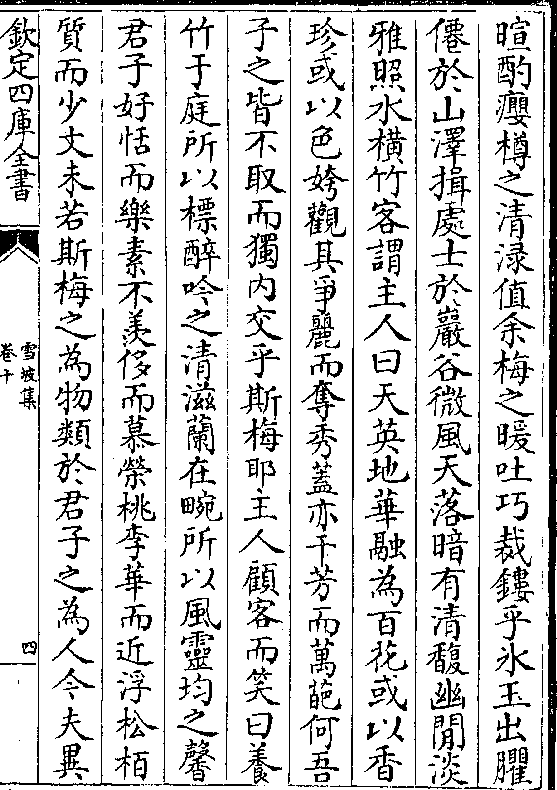 暄酌癭樽之清渌值余梅之暖吐巧裁鏤乎氷玉出臞
僊於山澤揖處士於巖谷微風天落暗有清馥幽閒淡
雅照水橫竹客謂主人曰天英地華融為百花或以香
珍或以色姱觀其爭麗而奪秀蓋亦千芳而萬葩何吾
子之皆不取而獨内交乎斯梅耶主人顧客而笑曰養
竹于庭所以標醉吟之清滋蘭在畹所以風靈均之馨
君子好恬而樂素不羡侈而慕榮桃李華而近浮松栢
質而少文未若斯梅之為物類於君子之為人今夫異
欽定四庫全書
雪坡集
卷十
四